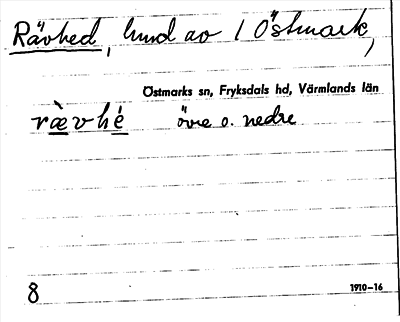 Rävhed, hund av 1 Östmark,
Östmarks sn, Fryksdals hd, Värmlands län
rævhé övre o. nedre
8 1910-16